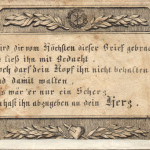 wird dir vom Höchsten dieser Brief gebrac
ließ ihn mit Bedacht.
och darf dein Kopf ihn nicht behalten
nd damit walten.
wär er nur ein Scherz
hast ihn abzugeben an dein Herz.